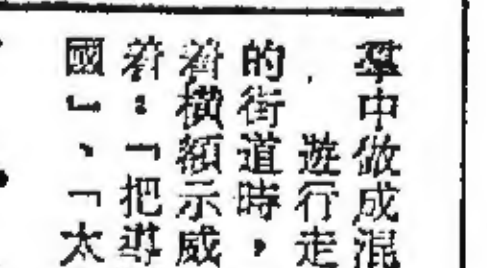 羣中做成混
遊行走
的街道時，
着橫額示威
着：「把導
國」、「太